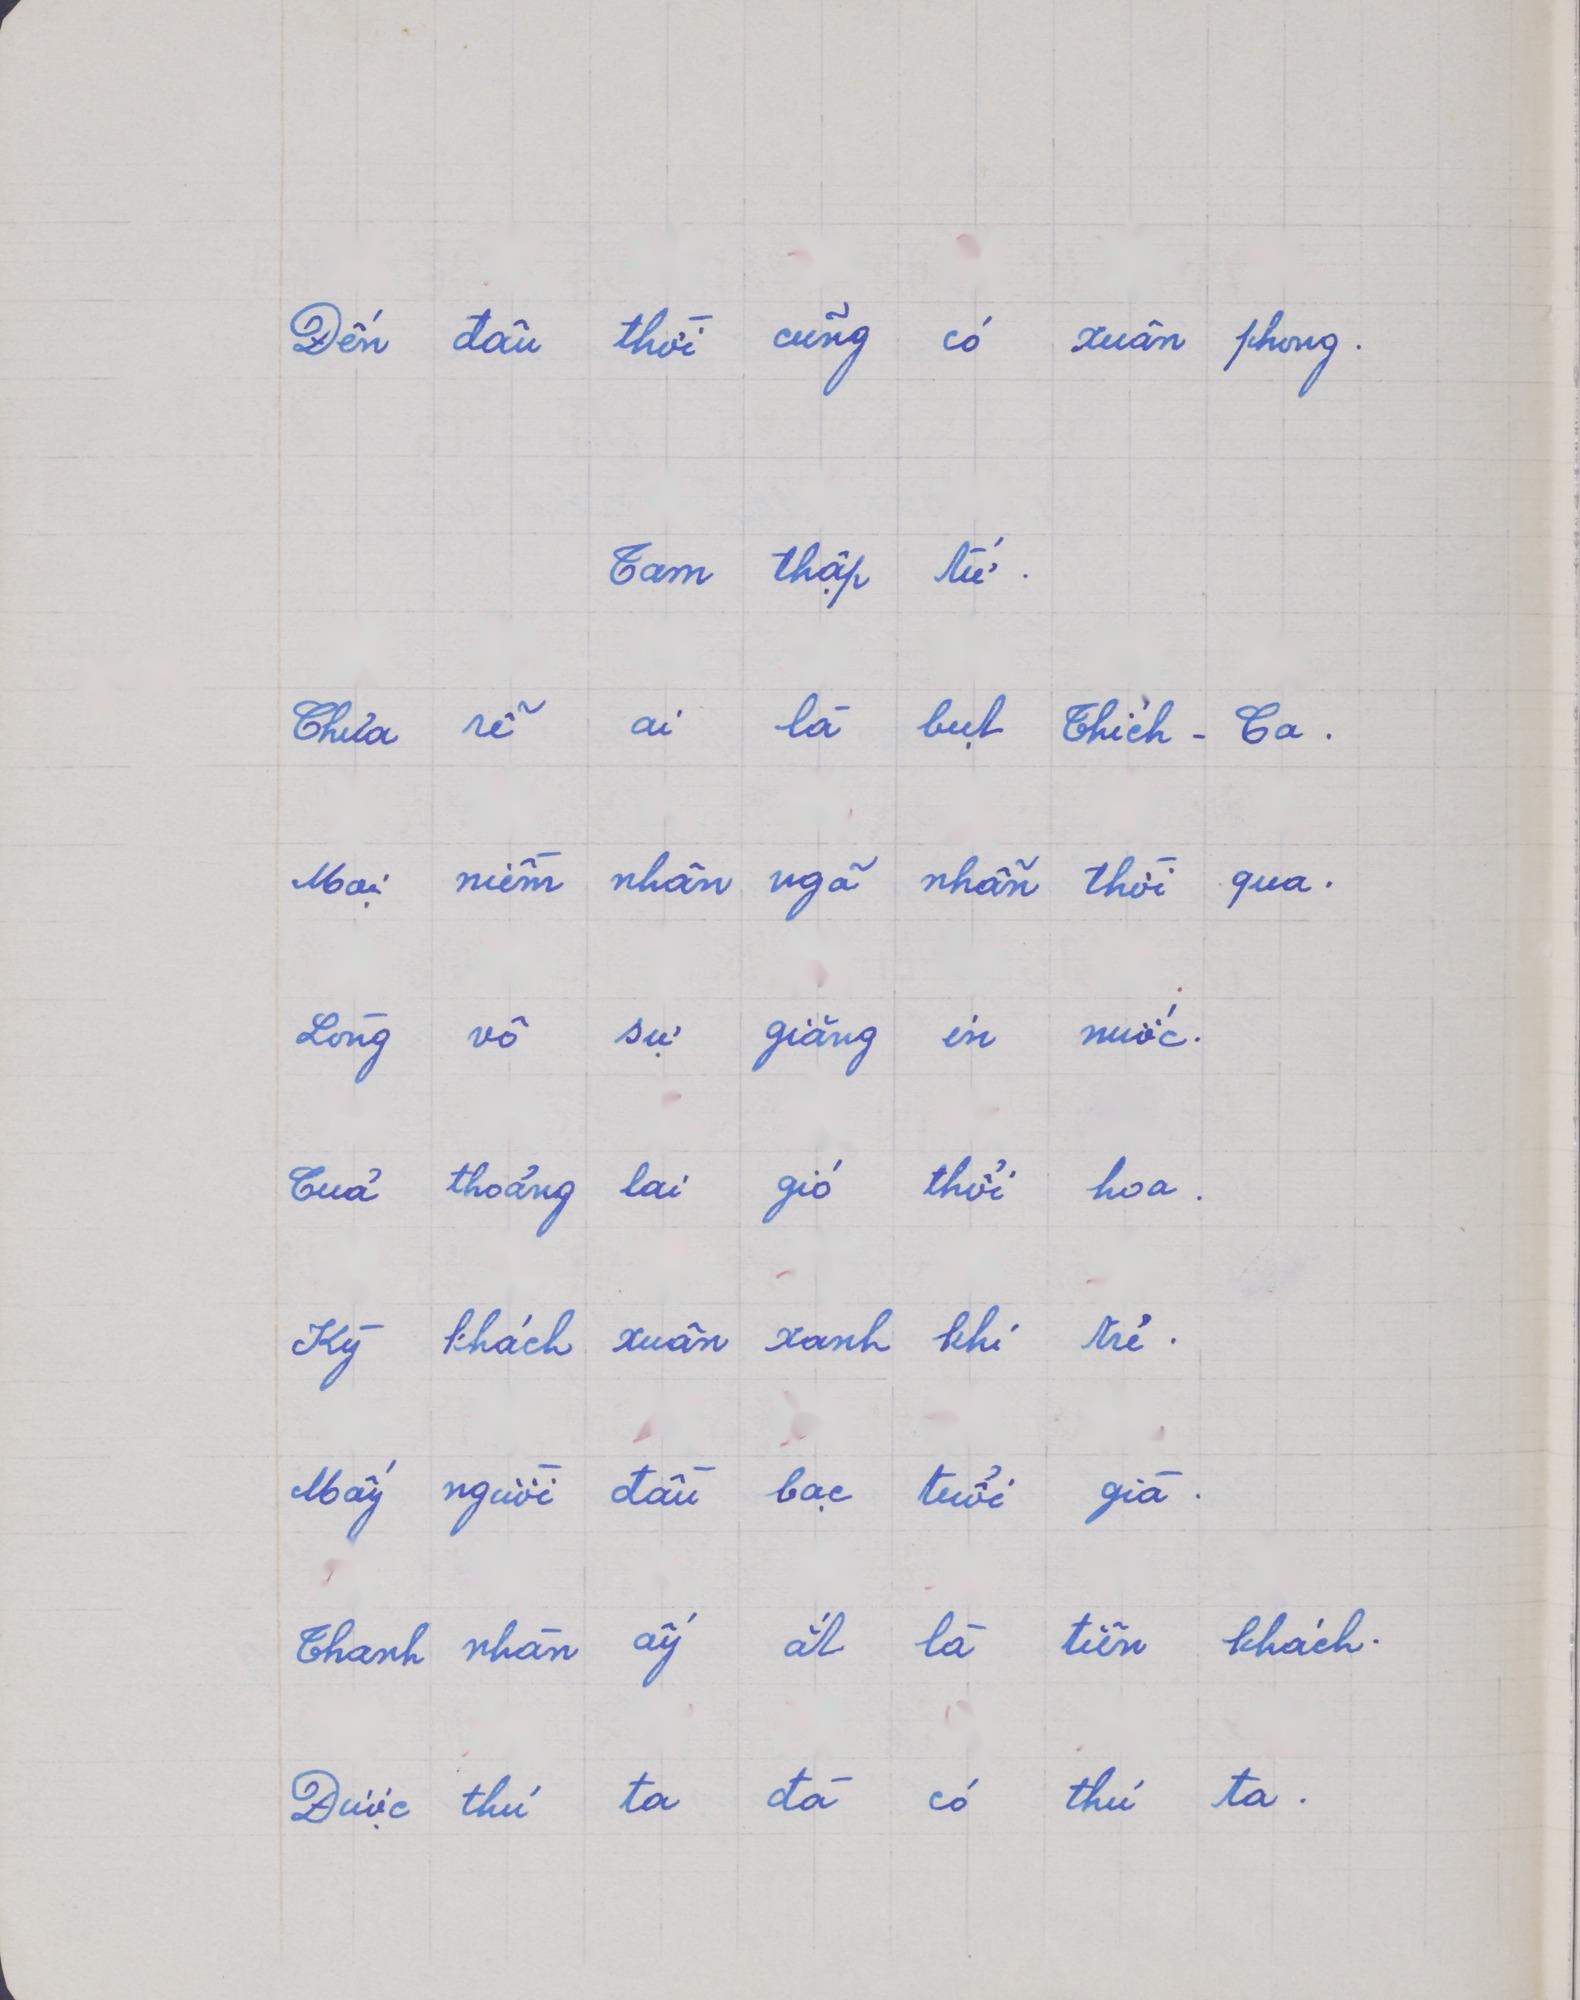 Đến đâu thời cũng có xuân phong.
Tam thập tứ.
Chửa rẽ ai là bụt Thích - Ca.
Mọi niềm nhân ngã nhẫn thời qua.
Lòng vô sự giăng in nước.
Của thoảng lai gió thổi hoa.
Kỳ khách xuân xanh khi trẻ.
Mấy người đầu bạc tuổi già.
Thanh nhàn ấy ắt là tiên khách.
Được thú ta đà có thú ta.